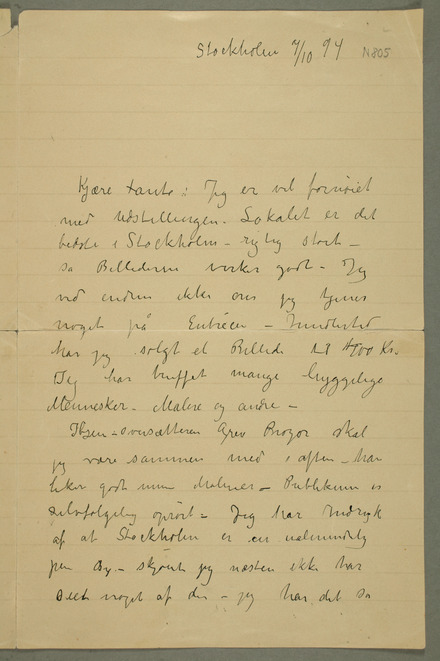 Stockholm 7/10 94 N 805
Kjære tante: Jeg er vel fornøiet
med Udstillingen. Lokalet er det
bedste i Stockholm – rigtig stort –
så Billederne virker godt – Jeg
ved endnu ikke om jeg tjener
noget på Entréen – Imidlertid
har jeg solgt et Billede til 400 Kr.
Jeg har truffet mange hyggelige
Mennesker – Malere og andre –
Ibsen-oversætteren Grev Prozor skal
jeg være sammen med i aften – han
liker godt mine Malerier – Publikum er
selvfølgelig oprørt – Jeg har Indtryk
af at Stockholm er en ualmindelig
pen By – skjønt jeg næsten ikke har
seet noget af den – jeg har det så